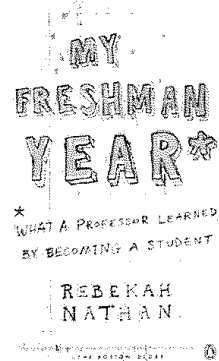 MY
FRESHMAN
YEAR*
*WHAT A PROFESSOR LEARNED
BY BECOMING A STUDENT
REBEKAH
NATHAN